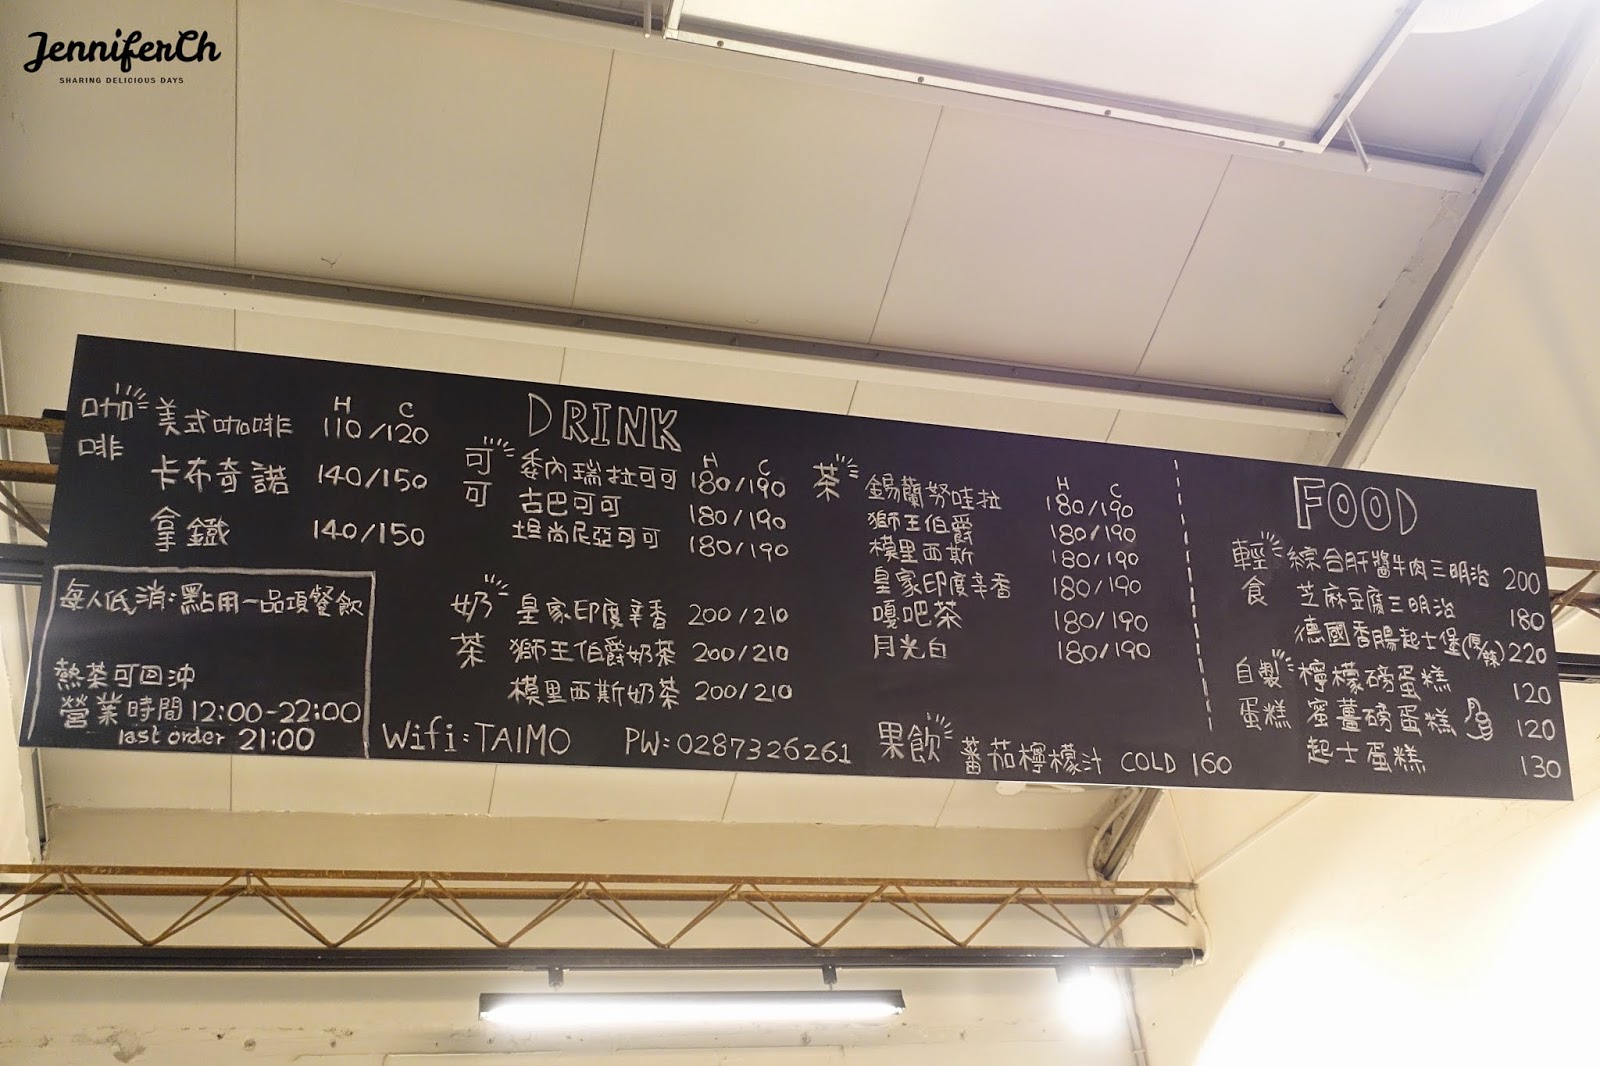 JenniferCh
SHARING DELICIOUS DAYS
DRINK
咖啡
H C
美式咖啡 110/120
卡布奇諾 140/150
拿鐵 140/150
每人低消:點用一品項餐飲
熱茶可回沖
營業時間12:00-22:00
last order 21:00
可可
H C
委內瑞拉可可 180/190
古巴可可 180/190
坦尚尼亞可可 180/190
奶茶
皇家印度辛香 200/210
獅王伯爵奶茶 200/210
模里西斯奶茶 200/210
Wifi:TAIMO PW:0287326261
茶
H C
錫蘭努哇拉 180/190
獅王伯爵 180/190
模里西斯 180/190
皇家印度辛香 180/190
嘎吧茶 180/190
月光白 180/190
果飲
蕃茄檸檬汁 COLD 160
FOOD
輕食
綜合肝醬牛肉三明治 200
芝麻豆腐三明治 180
德國香腸起士堡 220
自製蛋糕
檸檬磅蛋糕 120
蜜薑磅蛋糕 120
起士蛋糕 130